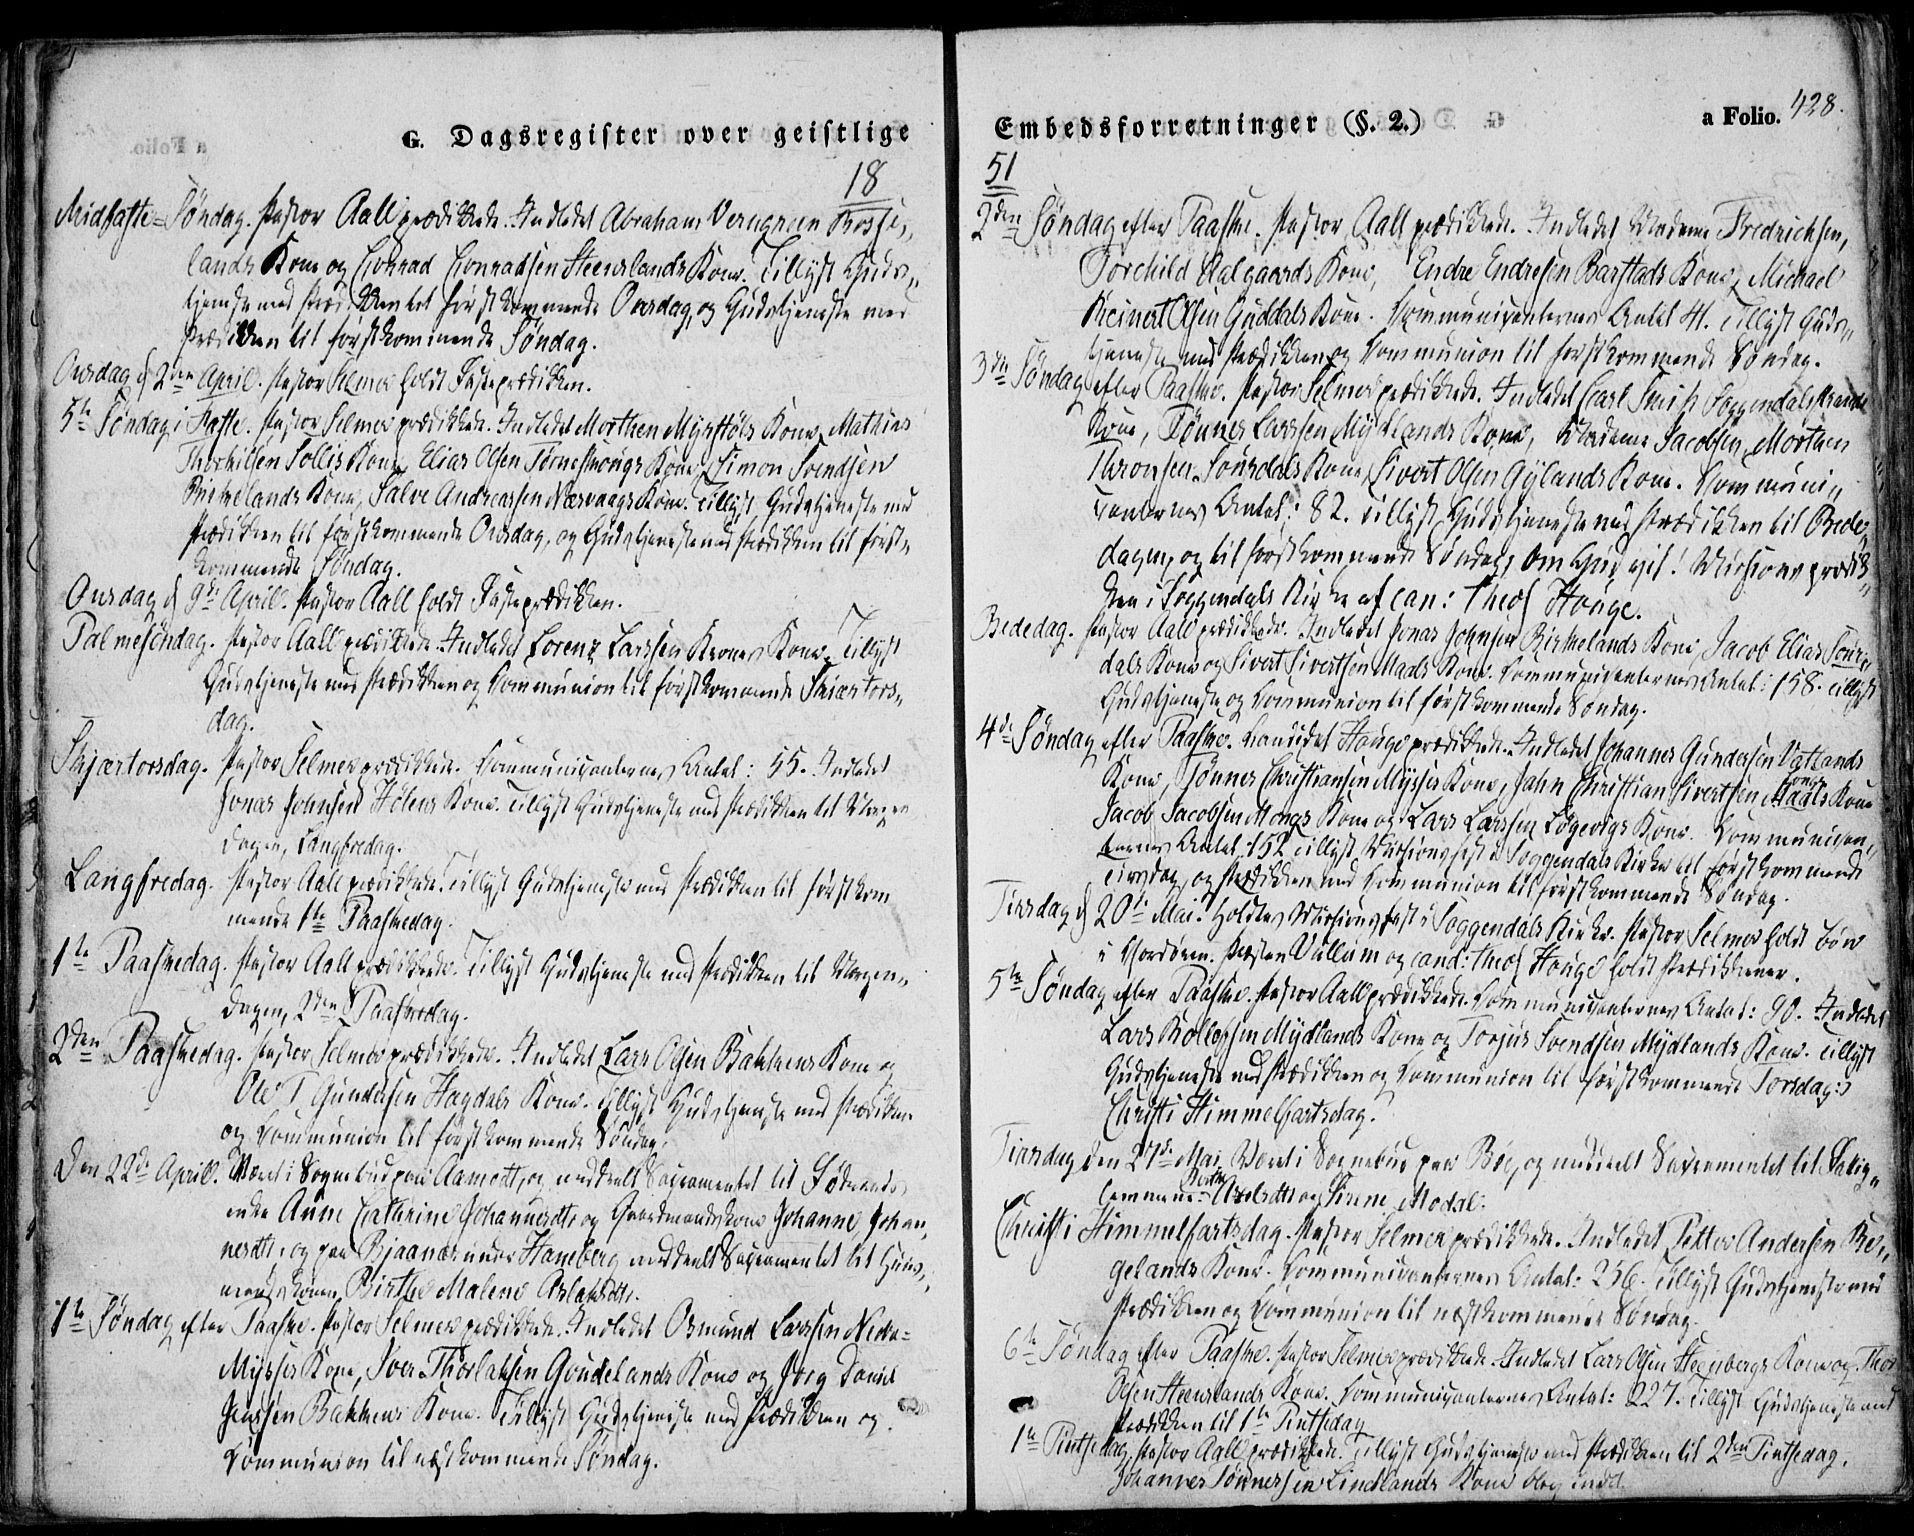 G. Dagsregister over geistlige
18
Midfaste-Søndag. Pastor Aall prædikede. Indledet Abraham Verngreen Rosse-
lands Kone og Conrad Conradsen Steenslands Kone. Tillyst Guds-
tjeneste med Prædiken til førstkommende Onsdag, og Gudstjeneste med
Prædiken til førstkommende Søndag.
Onsdag d 2den April. Pastor Selmer holdt Fasteprædiken.
5te Søndag i Faste. Pastor Selmer prædikede. Indledet Morthen Myrstøls Kone, Mathias
Thorkilsen Sollis Kone, Elias Olsen Kone, Simon Svendsen
Birkelands Kone, Salve Andreassen Nesvaags Kone. Tillyst Gudstjeneste med
Prædiken til førstkommende Onsdag, og Gudstjeneste med Prædiken til først-
kommende Søndag.
Onsdag d 9de April. Pastor Aall holdt Fasteprædiken.
Palmesøndag. Pastor Aall prædikede. Indledet Lorenz Larssen Kroners Kone. Tillyst
Gudstjeneste med Prædiken og Communion til førstkommende Skiærtors-
dag.
Skjærtorsdag. Pastor Selmer prædikede. Communicanternes Antal: 55. Indledet
Jonas Johnsen Hølens Kone. Tillyst Gudstjeneste med Prædiken til Morgen
dagen, Langfredag.
Langfredag. Pastor Aall prædikede. Tillyst Gudstjeneste med Prædiken til førstkom
mende 1te Paaskedag.
1te Paaskedag. Pastor Aall prædikede. Tillyst Gudstjeneste med Prædiken til Morgen-
dagen, 2den Paaskedag.
2den Paaskedag. Pastor Selmer prædikede. Indledet Lars Olsen Bakkens Kone og
Ole T. Gundersen Hagdals Kone. Tillyst Gudstjeneste med Prædiken
og Communion til førstkommende Søndag.
Den 22de April. Været i Sognebud paa Aamodt, og meddeelt Sacramentet til
enke Anne Cathrine Johannesdtr og Gaardmandskone Johanne Johan-
nesdtr, og paa Bjaanes under Haneberg meddeelt Sacramentet til Huus-
mandskonen Birthe Malene Aslaksdtr.
1te Søndag efter Paaske. Pastor Selmer prædikede. Indledet Osmund Larssen Nedre-
Mysses Kone, Iver Thorlaksen Goudelands Kone og Jørg Daniel
Jenssen Bakkens Kone. Tillyst Gudstjeneste med Prædiken og
Communion til næstkommende Søndag.
Embedsforretninger (§. 2.)
a Folio. 428.
51
2den Søndag efter Paaske. Pastor Aall prædikede. Indledet Madame Fredrichsen,
Torchild Aalgaards Kone, Endre Endresen Barstads Kone, Michael
Reinert Olsen Guddals Kone. Communicanternes Antal 41. Tillyst Guds-
tjeneste med Prædiken og Communion til førstkommende Søndag.
3die Søndag efter Paaske. Pastor Selmer prædikede. Indledet Carl Smith Soggendalstrands
Kone, Tønnes Larssen Mydlands Kone, Madame Jacobsen, Morthen
Thronsen Sourdals Kone, Sivert Olsen Gylands Kone. Communi-
canternes Antal: 82. Tillyst Gudstjeneste med Prædiken til Bede-
dagen, og til førstkommende Søndag, om Gud vil! Missionsprædi-
ken i Soggendals Kirke af can: theol Houge.
Bededag. Pastor Aall prædikede. Indledet Jonas Johnsen Birkelands Kone, Jacob Elias Sour-
dals Kone og Sivert Sivertsen Maals Kone. Communicanternes Antal: 158. Tillyst
Gudstjeneste og Communion til førstkommende Søndag.
4de Søndag efter Paaske. Candidat Houge prædikede. Indledet Johannes Gundersen Vatlands
Kone, Tønnes Christiansen Mysses Kone, Jahn Christian Sivertsen Maals Kone
Jacob Jacobsen Mongs Kone og Lars Larssen Løgevigs Kone. Communican-
ternes Antal: 152. Tillyst Missionsfest i Soggendals Kirke til førstkommende
Tirsdag, og Prædiken med Communion til førstkommende Søndag.
Tirsdag d 20de Mai. Holdtes Missionsfest i Soggendals Kirke. Pastor Selmer holdt Bøn
i Chordøren. Præsten Vullum og cand: theol Houge holdt Prædikener.
5te Søndag efter Paaske. Pastor Aall prædikede. Communicanternes Antal: 90. Indledet
Lars Rollefsen Mydlands Kone og Torjus Svendsen Mydlands Kone. Tillyst
Gudstjeneste med Prædiken og Communion til førstkommende Torsdag:
Christi Himmelfartsdag.
Tirsdag den 27de Mai. Været i Sognebud paa Bøe, og meddeelt Sacramentet til Fattig-
lemmene Axelsdtr og Sinne Modal.
Christi Himmelfartsdag. Pastor Selmer prædikede. Indledet Petter Andersen Re-
gelands Kone. Communicanternes Antal: 256. Tillyst Gudstjeneste med
Prædiken og Communion til næstkommende Søndag.
6te Søndag efter Paaske. Pastor Selmer prædikede. Indledet Lars Olsen Steenbergs Kone og Thor
Olsen Steenslands Kone. Communicanternes Antal: 227. Tillyst Gudstjeneste med
Prædiken til 1te Pintsedag.
1te Pintsedag. Pastor Aall prædikede. Tillyst Gudstjeneste med Prædiken til 2den Pintsedag.
Johannes Tønnessen Lindlands Kone blev indl.